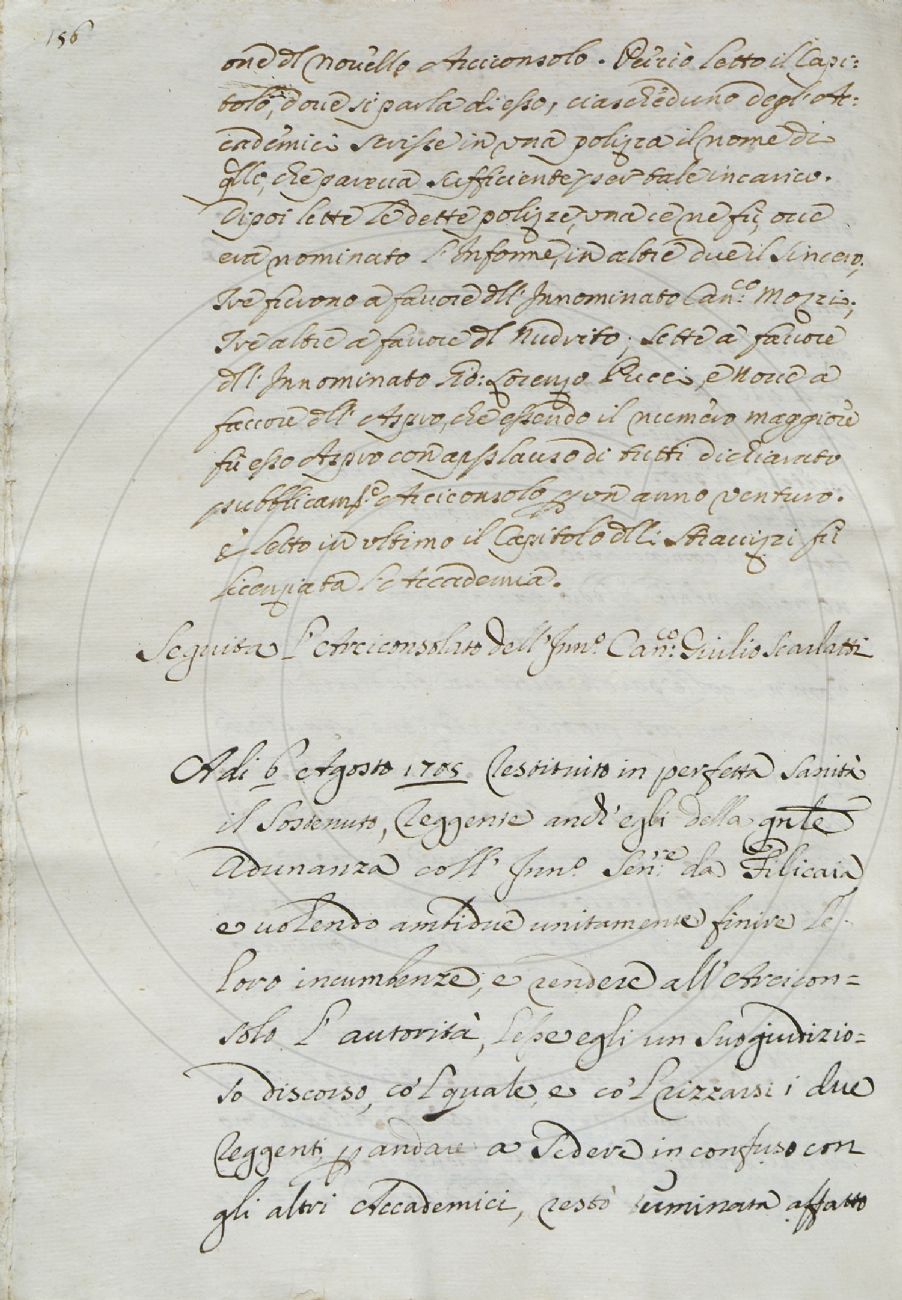 156
one dl novello Arciconsolo. Perciò letto il Capi:
tolo, dove si parla di esso, ciascheduno degl'Ac:
cademici scrisse in una polizza il nome di
qllo, che pareva sufficiente per tale incarico.
Dipoi lette le dette polizze, una ce ne fù, ove
era nominato l'Informe, in altre due il Sincero,
Tre furono a favore dll'Innominato Can.co Mozzi,
Tre altre a favore dl Nudrito; Sette a favore
dll'Innominato Gio: Lorenzo Pucci, e Nove a
favore dll'Aspro, che essendo il numero maggiore
fù esso Aspro con applauso di tutti dichiarato
pubblicamte. Arciconsolo p un anno venturo.
E letto in ultimo il Capitolo dlli Stravizzi fù
licenziata l'Accademia.
Seguita l'Arciconsolato dell'Inno. Canco: Giulio Scarlatti
A di 6 Agosto 1705 Restituito in perfetta sanità
il Sostenuto, Reggente anch'egli della gnle
Adunanza coll'Inno. Senre. da Filicaia,
e volendo ambidue unitamente finire le
loro incumbenze, e rendere all'Arcicon=
solo l'autorità, lesse egli un suo giudizio=
so discorso, co'l quale, e co'l rizzarsi i due
Reggenti p andare a sedere in confuso con
gli altri Accademici, restò terminata affatto